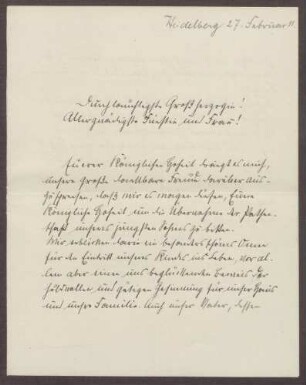 Heidelberg 27. Februar 11.
Durchlauchtigste Großherzogin!
Allergnädigste Fürstin und Frau!
Euerer Königlichen Hoheit drängt es mich,
unsere große dankbare Freude darüber aus-
zusprechen, daß wir es wagen dürfen, Eure
Königliche Hoheit um die Übernahme der Pathen-
schaft unseres jüngsten Sohnes zu bitten.
Wir erblicken darin ein besonders schönes Omen
für den Eintritt unseres Kindes ins Leben, vor al-
lem aber einen, uns beglückenden Beweis der
huldvollen und gütigen Gesinnung für unser Haus
und unsere Familie. Auch unser Vater, dessen